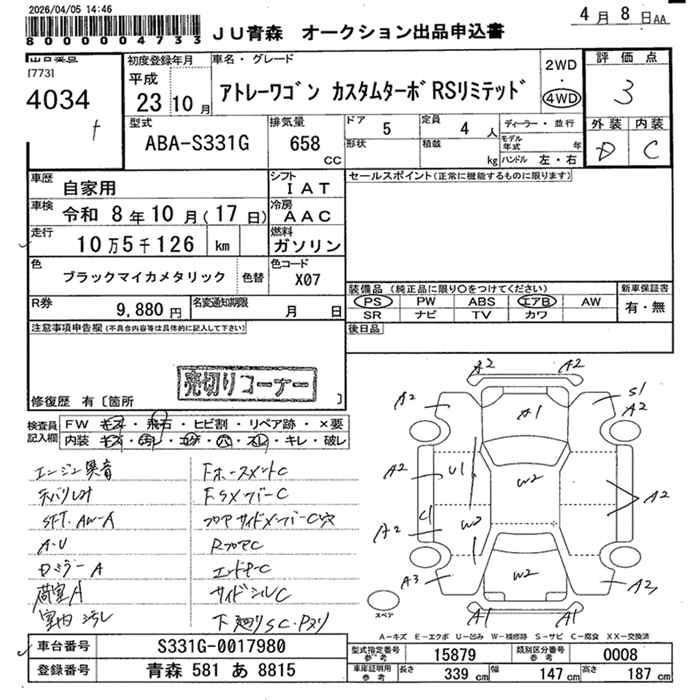 2026/04/05 14:46
8000004733
JU青森 オークション出品申込書
4月 8日AA
[773]
4034
初度登録年月
平成
23 10月
車名・グレード
アトレーワゴン カスタムターボRSリミテッド
2WD
・
4WD
評価点
3
外装 内装
D C
型式
ABA-S331G
排気量
658
cc
ドア 5
定員 4 人
形状
積載 kg
ディーラー・並行
モデル年式 年
ハンドル 左・右
車歴
自家用
シフト
IAT
セールスポイント(正常に機能するものに限ります)
車検
令和 8年10月(17日)
冷房
AAC
走行
10万5千126 km
燃料
ガソリン
色
ブラックマイカメタリック
色替
色コード
X07
R券
9,880 円
名変通知期限
月 日
装備品 (純正品に限り○をつけてください)
PS PW ABS エアB AW
SR ナビ TV カワ
新車保証書
有・無
後日品
注意事項申告欄(不具合内容等は具体的に記入して下さい)
売切りコーナー
修復歴 有〔箇所 〕
検査員記入欄
FW キズ・飛石・ヒビ割・リペア跡・×要
内装 キズ・汚レ・コゲ・穴・スレ・キレ・破レ
エンジン異音
SFT.AW-A
A-U
DミラーA
荷室A
室内汚レ
FホースメントC
FSメンバーC
フロアサイドメンバーC穴
RフロアC
エンドPC
サイドシルC
下廻りSC.Pヌリ
A2 A2
A2 A1 S1
A2
A2 U1 W2 A2
C1
A2 W2
A3 W2 A2
A1 A1
スペア
A-キズ E-エクボ U-凹み W-補修跡 S-サビ C-腐食 XX-交換済
車台番号 S331G-0017980
登録番号 青森 581 あ 8815
型式指定番号 参考 15879
類別区分番号 参考 0008
車庫証明用 参考 長さ 339 cm 幅 147 cm 高さ 187 cm